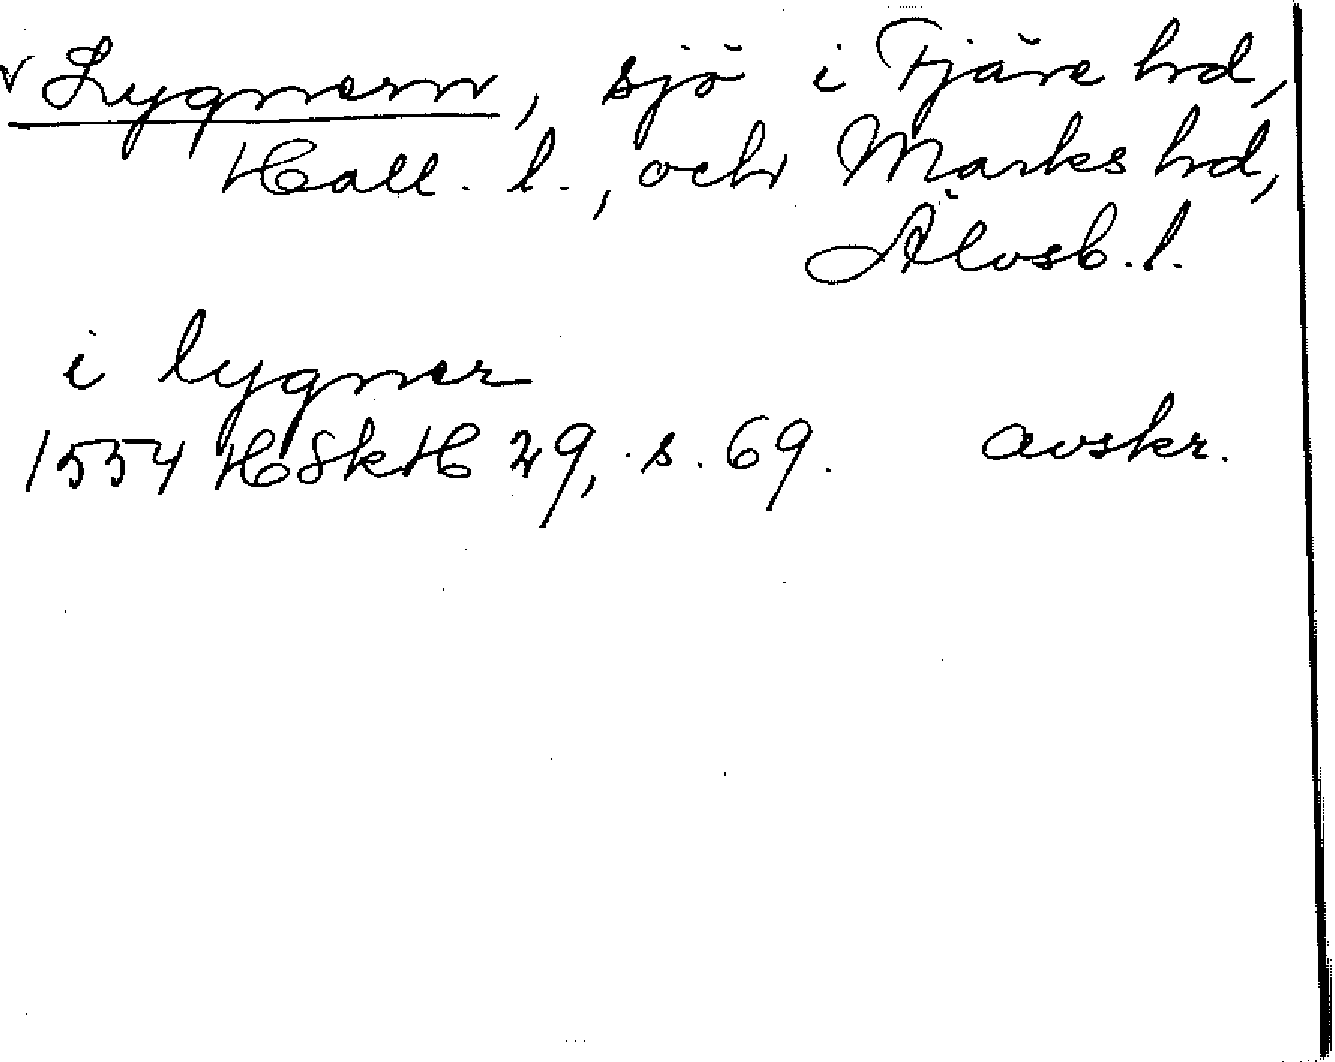 v Lygnern, sjö i Fjäre hd,
Hall. l., och Marks hd,
Älvsb. l.
i lygner
1554 HSkH 29, s. 69. avskr.